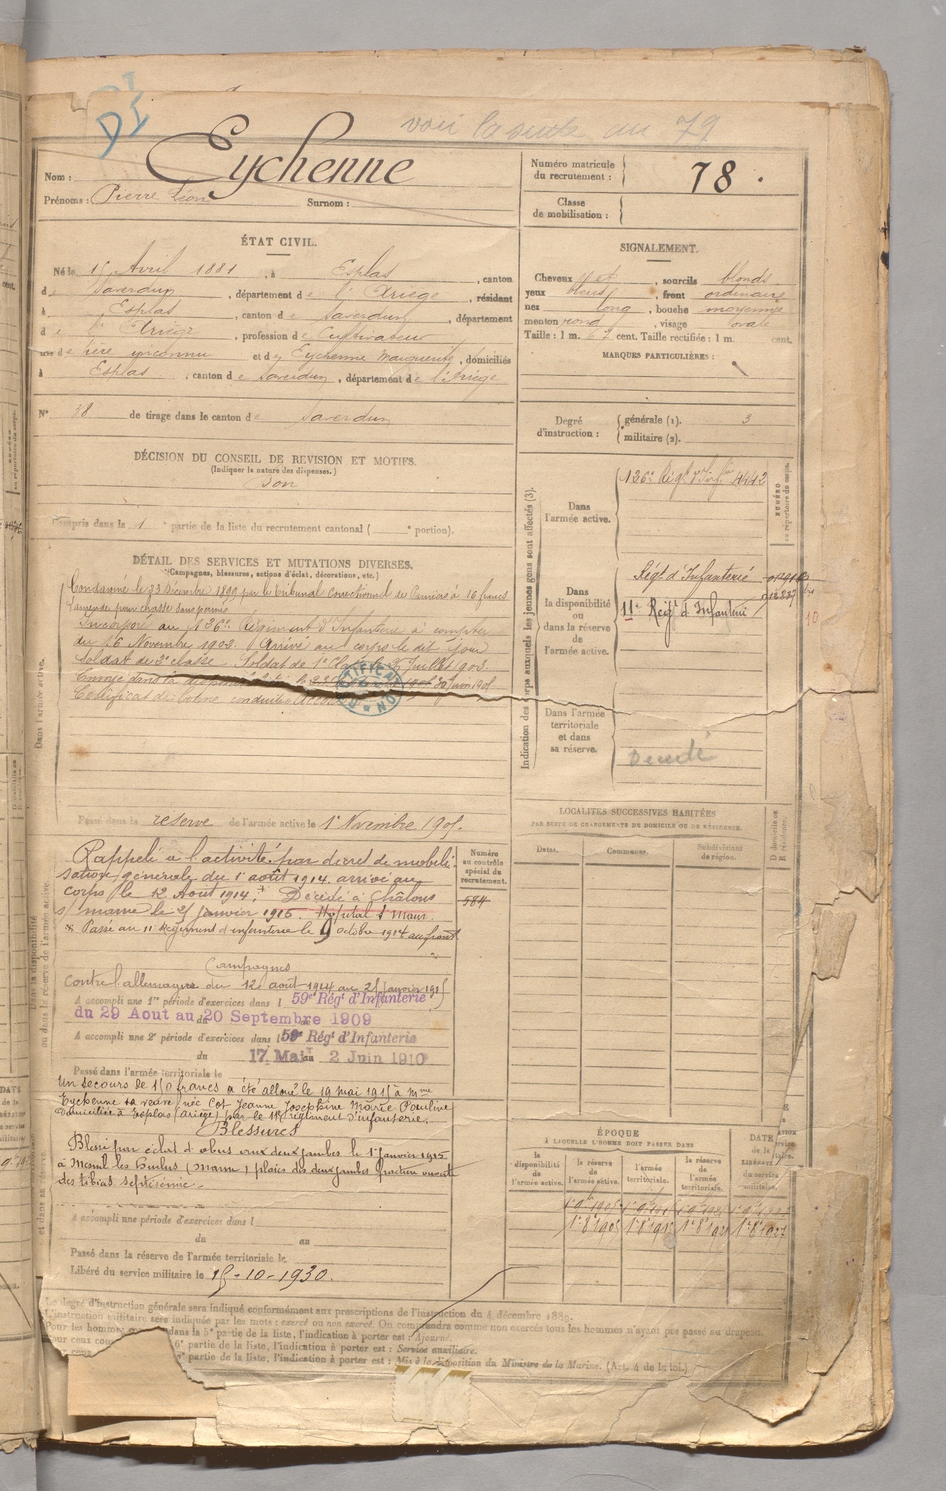 voir la suite au 79
Nom : Eychenne
Prénoms : Pierre Léon Surnom :
Numéro matricule du recrutement : 78.
Classe de mobilisation :
ÉTAT CIVIL.
Né le 15 Avril 1881, à Esplas, canton
de Saverdun, département de l'Ariège, résidant
à Esplas, canton de Saverdun, département
de l'Ariège, profession de Cultivateur
fils de père inconnu et de Eychenne Marguerite, domiciliés
à Esplas, canton de Saverdun, département de l'Ariège
N° 38 de tirage dans le canton de Saverdun
SIGNALEMENT.
Cheveux sourcils blonds
yeux bleus, front ordinaire
nez long, bouche moyenne
menton rond, visage ovale
Taille : 1 m. 67 cent. Taille rectifiée : 1 m. cent.
MARQUES PARTICULIÈRES :
Degré d'instruction : générale (1). 3
militaire (2).
DÉCISION DU CONSEIL DE REVISION ET MOTIFS.
(Indiquer la nature des dispenses.)
Bon
Compris dans la 1e partie de la liste du recrutement cantonal ( e portion).
DÉTAIL DES SERVICES ET MUTATIONS DIVERSES.
(Campagnes, blessures, actions d'éclat, décorations, etc.)
Condamné le 23 Décembre 1899 par le tribunal Correctionnel de Pamiers à 16 francs
d'amende pour chasse sans permis
Incorporé au 126e Régiment d'Infanterie à compter
du 16 Novembre 1902. Arrivé au corps le dit jour
Soldat de 2e classe. Soldat de 1e Classe le Juillet 1903.
Envoyé dans la
Certificat de bonne conduite Accordé
Passé dans la réserve de l'armée active le 1e Novembre 1905.
Indication des corps auxquels les jeunes gens sont affectés (3).
Dans l'armée active.
126e Régt d'Infrie 4442
NUMÉRO au répertoire du corps.
Dans la disponibilité ou dans la réserve de l'armée active.
Régt d'Infanterie
11e Régt d'Infanterie
10
Dans l'armée territoriale et dans sa réserve.
Décédé
LOCALITÉS SUCCESSIVES HABITÉES
PAR SUITE DE CHANGEMENTS DE DOMICILE OU DE RÉSIDENCE.
Dates. Communes. Subdivisions de région. D domicile ou R résidence.
Dans l'armée active.
Dans la disponibilité ou dans la réserve de l'armée active.
Rappelé à l'activité par décret de mobili-
sation générale du 1er août 1914. arrivé au
corps le 12 Août 1914. * Décédé à Châlons
s/ marne le 25 janvier 1915. Hôpital
* Passé au 11e Régiment d'infanterie le 9 octobre 1914 au front
Numéro au contrôle spécial du recrutement.
584
Campagnes
Contre l'allemagne du 12 août 1914 au 25 janvier 1915
A accompli une 1re période d'exercices dans l 59e Régt d'Infanterie
du 29 Aout au 20 Septembre 1909
A accompli une 2e période d'exercices dans l 59e Régt d'Infanterie
du 17 Mai au 2 Juin 1910
Passé dans l'armée territoriale le
Un secours de 150 francs a été alloué le 19 mai 1915 à Mme
Eychenne sa veuve née Jeanne Josephine Marie Pauline
domiciliée à Esplas (Ariège) par le 11e régiment d'infanterie.
Blessures
Blessé par éclat d'obus aux deux jambes le 1er janvier 1915
à Mesnil les Hurlus (Marne) plaies des deux jambes fraction ouverte
des tibias septicémie.
A accompli une période d'exercices dans l
du au
Passé dans la réserve de l'armée territoriale le
Libéré du service militaire le 15-10-1930.
ÉPOQUE
À LAQUELLE L'HOMME DOIT PASSER DANS
la disponibilité de l'armée active. la réserve de l'armée active. l'armée territoriale. la réserve de l'armée territoriale. DATE de la LIBÉRATION du service militaire.
Le degré d'instruction générale sera indiqué conformément aux prescriptions de l'instruction du 4 décembre 1889.
L'instruction militaire sera indiquée par les mots : exercé ou non exercé. On comprendra comme non exercés tous les hommes n'ayant pas passé au drapeau.
Pour les hommes dans la 5e partie de la liste, l'indication à porter est : Ajourné.
Pour ceux 6e partie de la liste, l'indication à porter est : Service auxiliaire.
7e partie de la liste, l'indication à porter est : Mis à la disposition du Ministre de la Marine. (Art. 4 de la loi.)